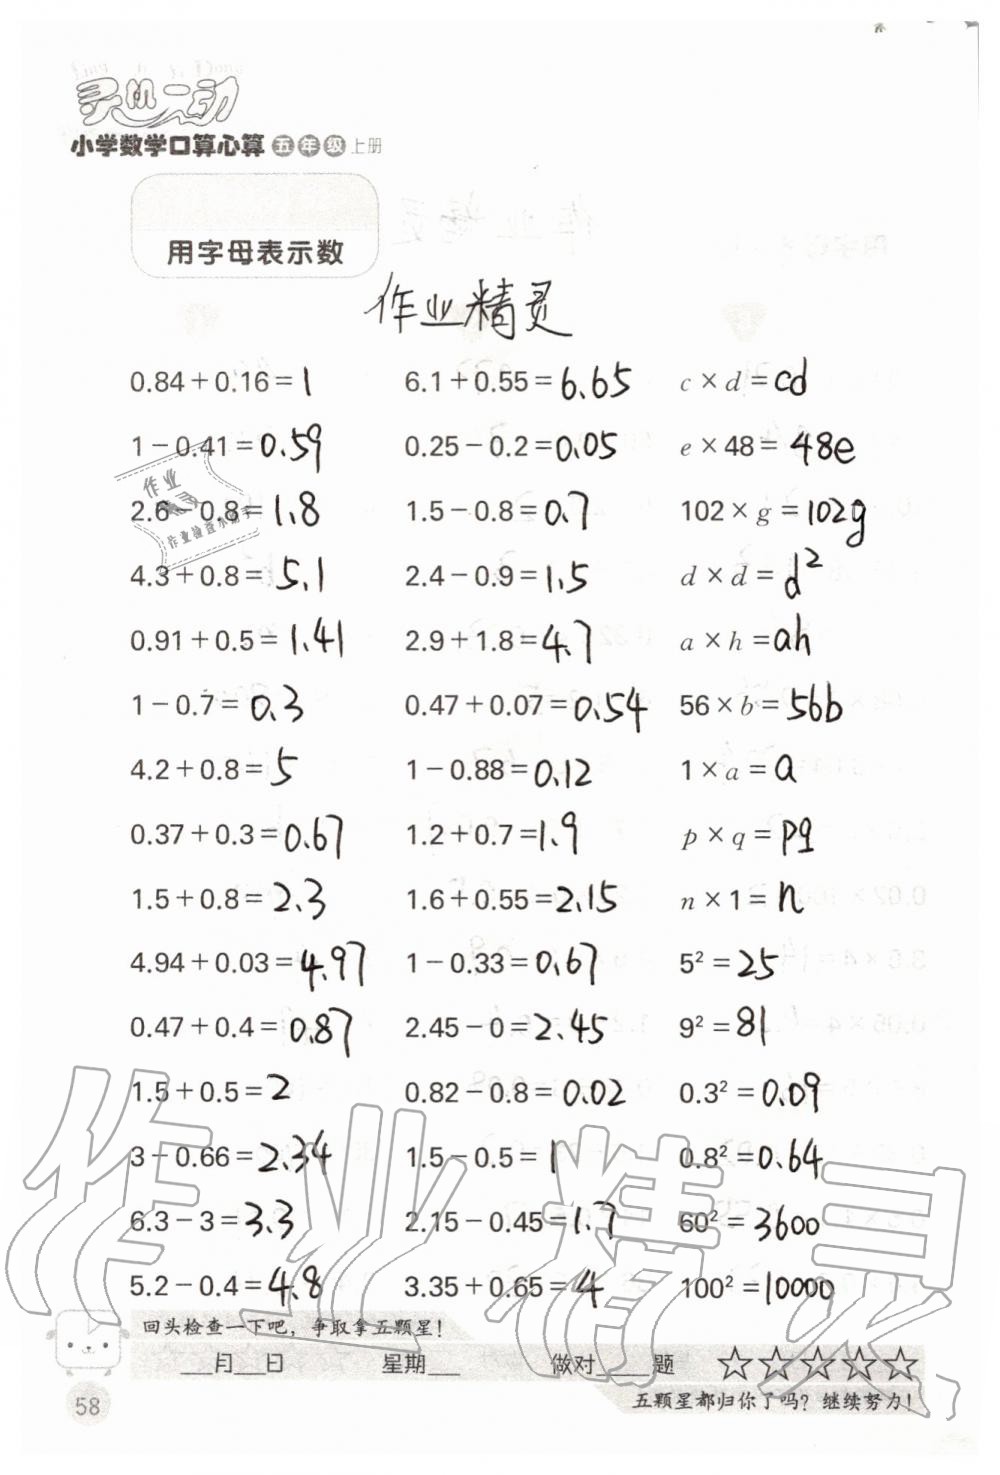 灵机一动
小学数学口算心算 五年级 上册
用字母表示数
作业精灵
0.84+0.16=1 6.1+0.55=6.65 c×d=cd
1-0.41=0.59 0.25-0.2=0.05 e×48=48e
作业
2.6 0.8=1.8 1.5-0.8=0.7 102×g=102g
作业检查小助手
4.3+0.8=5.1 2.4-0.9=1.5 d×d=d²
0.91+0.5=1.41 2.9+1.8=4.7 a×h=ah
1-0.7=0.3 0.47+0.07=0.54 56×b=56b
4.2+0.8=5 1-0.88=0.12 1×a=a
0.37+0.3=0.67 1.2+0.7=1.9 p×q=pq
1.5+0.8=2.3 1.6+0.55=2.15 n×1=n
4.94+0.03=4.97 1-0.33=0.67 5²=25
0.47+0.4=0.87 2.45-0=2.45 9²=81
1.5+0.5=2 0.82-0.8=0.02 0.3²=0.09
3-0.66=2.34 1.5-0.5=1 0.8²=0.64
6.3-3=3.3 2.15-0.45=1.7 60²=3600
5.2-0.4=4.8 3.35+0.65=4 100²=10000
作业精灵
回头检查一下吧，争取拿五颗星！
___月___日 星期___ 做对____题 ☆☆☆☆☆
58 五颗星都归你了吗？继续努力！